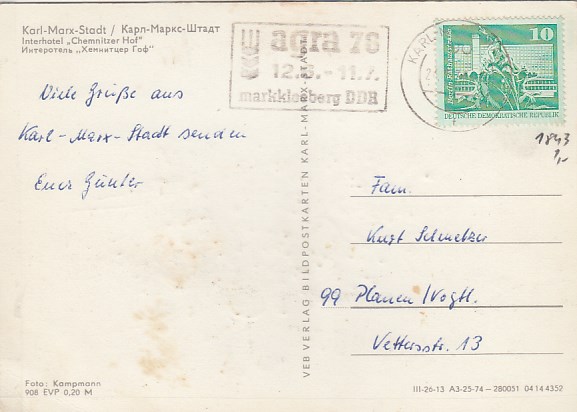 Karl-Marx-Stadt / Карл-Маркс-Штадт
Interhotel „Chemnitzer Hof"
Интеротель „Хемнитцер Гоф"
agra 76
12.6.-11.7.
markkleeberg DDR
KARL-M
10
DEUTSCHE DEMOKRATISCHE REPUBLIK
1843
1,-
Viele Grüße aus
Karl-Marx-Stadt senden
Eure Günter
VEB VERLAG BILDPOSTKARTEN KARL-MARX-STADT
Fam.
Kurt Schmelzer
99 Plauen/Vogtl.
Vettersstr. 13
Foto: Kampmann
908 EVP 0,20 M
III-26-13 A3-25-74-280051 04 14 4352